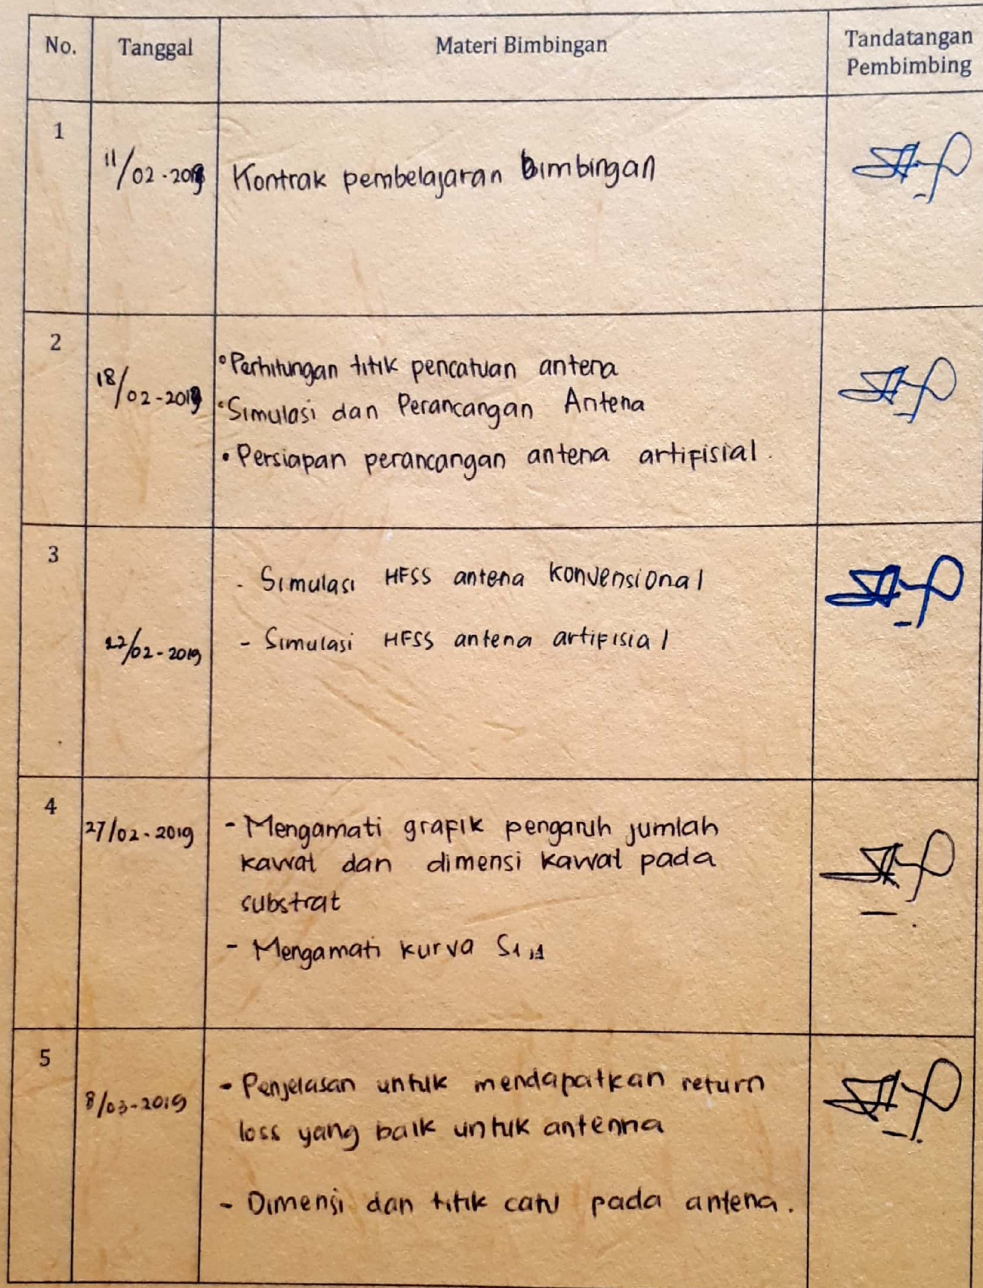 No. Tanggal Materi Bimbingan Tandatangan
Pembimbing
1
11/02-2019 Kontrak pembelajaran bimbingan
2
18/02-2019
• Perhitungan titik pencatuan antena
• Simulasi dan Perancangan Antena
• Persiapan perancangan antena artifisial.
3
22/02-2019
- Simulasi HFSS antena konvensional
- Simulasi HFSS antena artifisial
4
27/02-2019
- Mengamati grafik pengaruh jumlah
kawat dan dimensi kawat pada
substrat
- Mengamati kurva S1,1
5
8/03-2019
- Penjelasan untuk mendapatkan return
loss yang baik untuk antenna
- Dimensi dan titik catu pada antena.